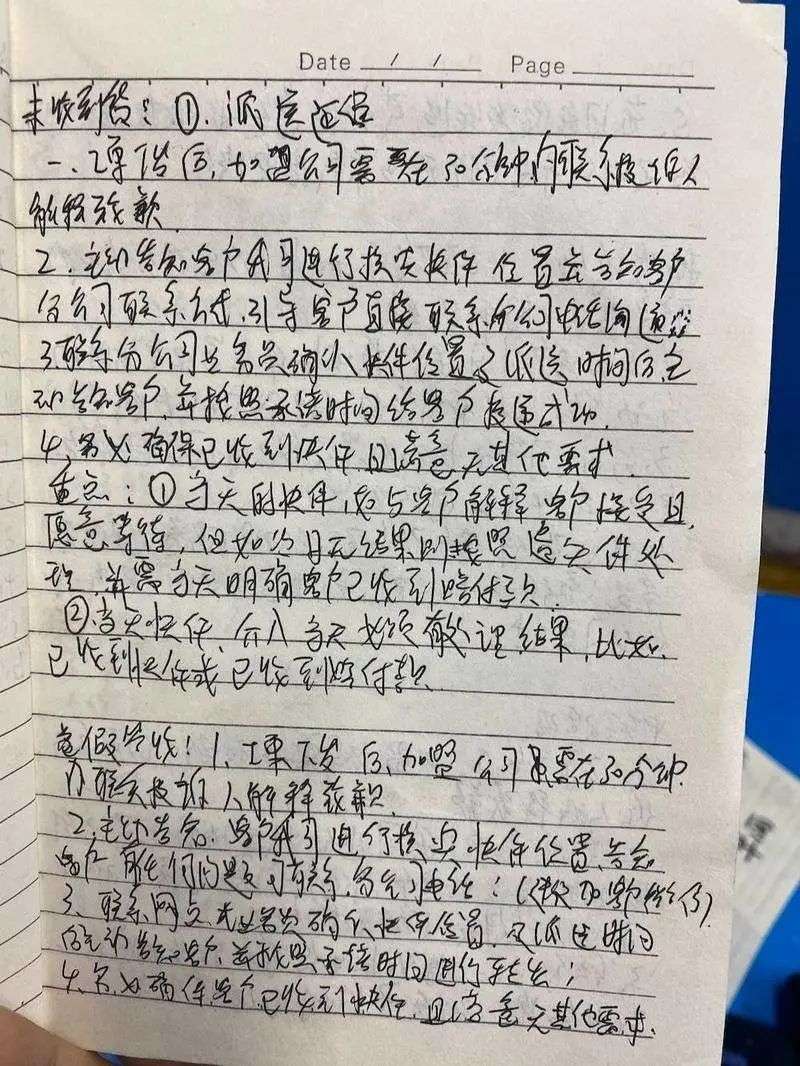 Date / / Page
未收到货:①.派送延误
一.工单下发后,加盟公司需要在30分钟内联系投诉人
解释致歉
2.主动告知客户我司进行核实快件位置并告知客户
分公司联系方式,引导客户直接联系分公司电话沟通
3.联系分公司业务员确认快件位置及派送时间后,主
动告知客户,并按照承诺时间给客户投递成功.
4.务必确保已收到快件且满意无其他需求.
重点:①当天的快件,如与客户解释客户接受且
愿意等待,但如次日无结果则按照遗失件处
理,并需当天明确客户已收到赔付款.
②.当天快件,介入当天必须有处理结果,比如.
已收到快件或已收到赔付款.
虚假签收:1.工单下发后,加盟公司需要在30分钟
内联系投诉人解释致歉.
2.主动告知.客户我司进行核实快件位置,告知
客户有任何问题可联系.分公司电话:
3.联系网点业务员确认快件位置.及派送时间
后主动告知客户,并按照承诺时间进行转出;
4.务必确保客户已收到快件.且满意无其他需求.